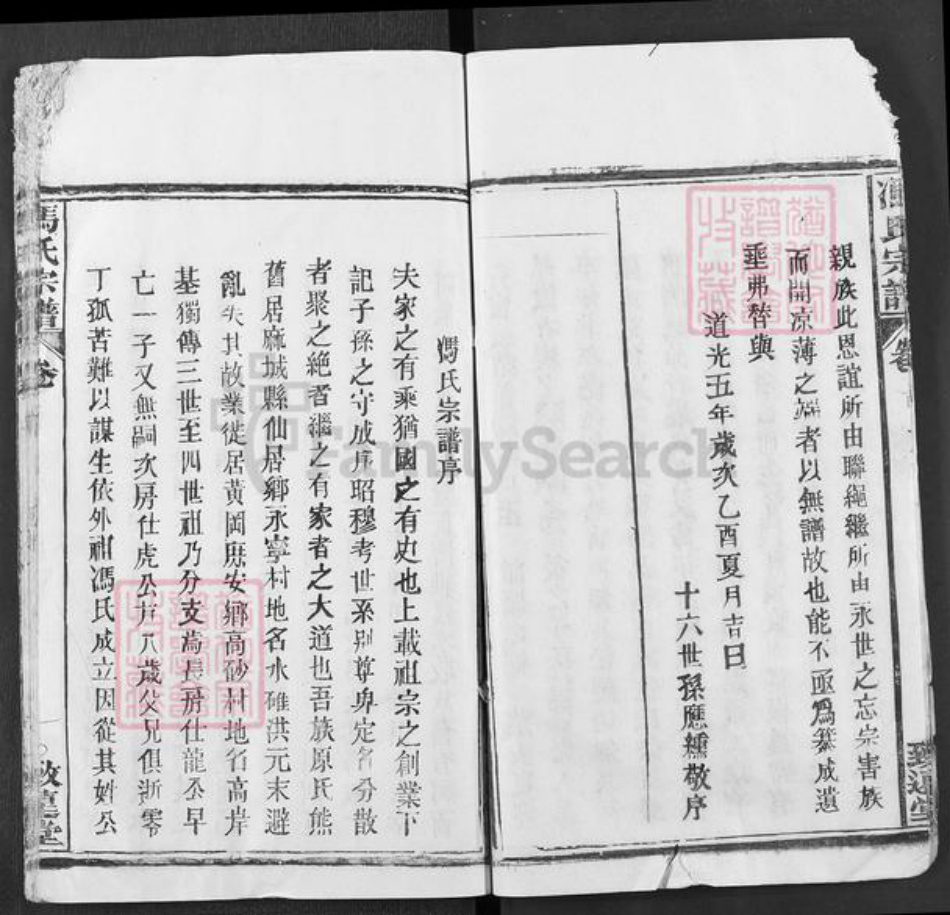 馮氏宗譜 卷
親族此恩誼所由聯繩繼所由永世之忘宗害族
而開涼薄之端者以無譜故也能不亟爲纂成遺
垂弗替與
道光五年歲次乙酉夏月吉日
十六世孫應 敬序
馮氏宗譜序
夫家之有乘猶國之有史也上載祖宗之創業下
記子孫之守成序昭穆考世系别尊卑定名分散
者聚之絶者繼之有家者之大道也吾族原氏熊
舊居麻城縣仙居鄉永寧村地名水碓洪元末避
亂失其故業徙居黃岡庶安鄉高砂村地名高岸
基獨傳三世至四世祖乃分支爲長房仕龍公早
亡一子又無嗣次房仕虎公 八歲父兄俱逝零
丁孤苦難以謀生依外祖馮氏成立因從其姓公
馮氏宗譜 卷
堂
FamilySearch